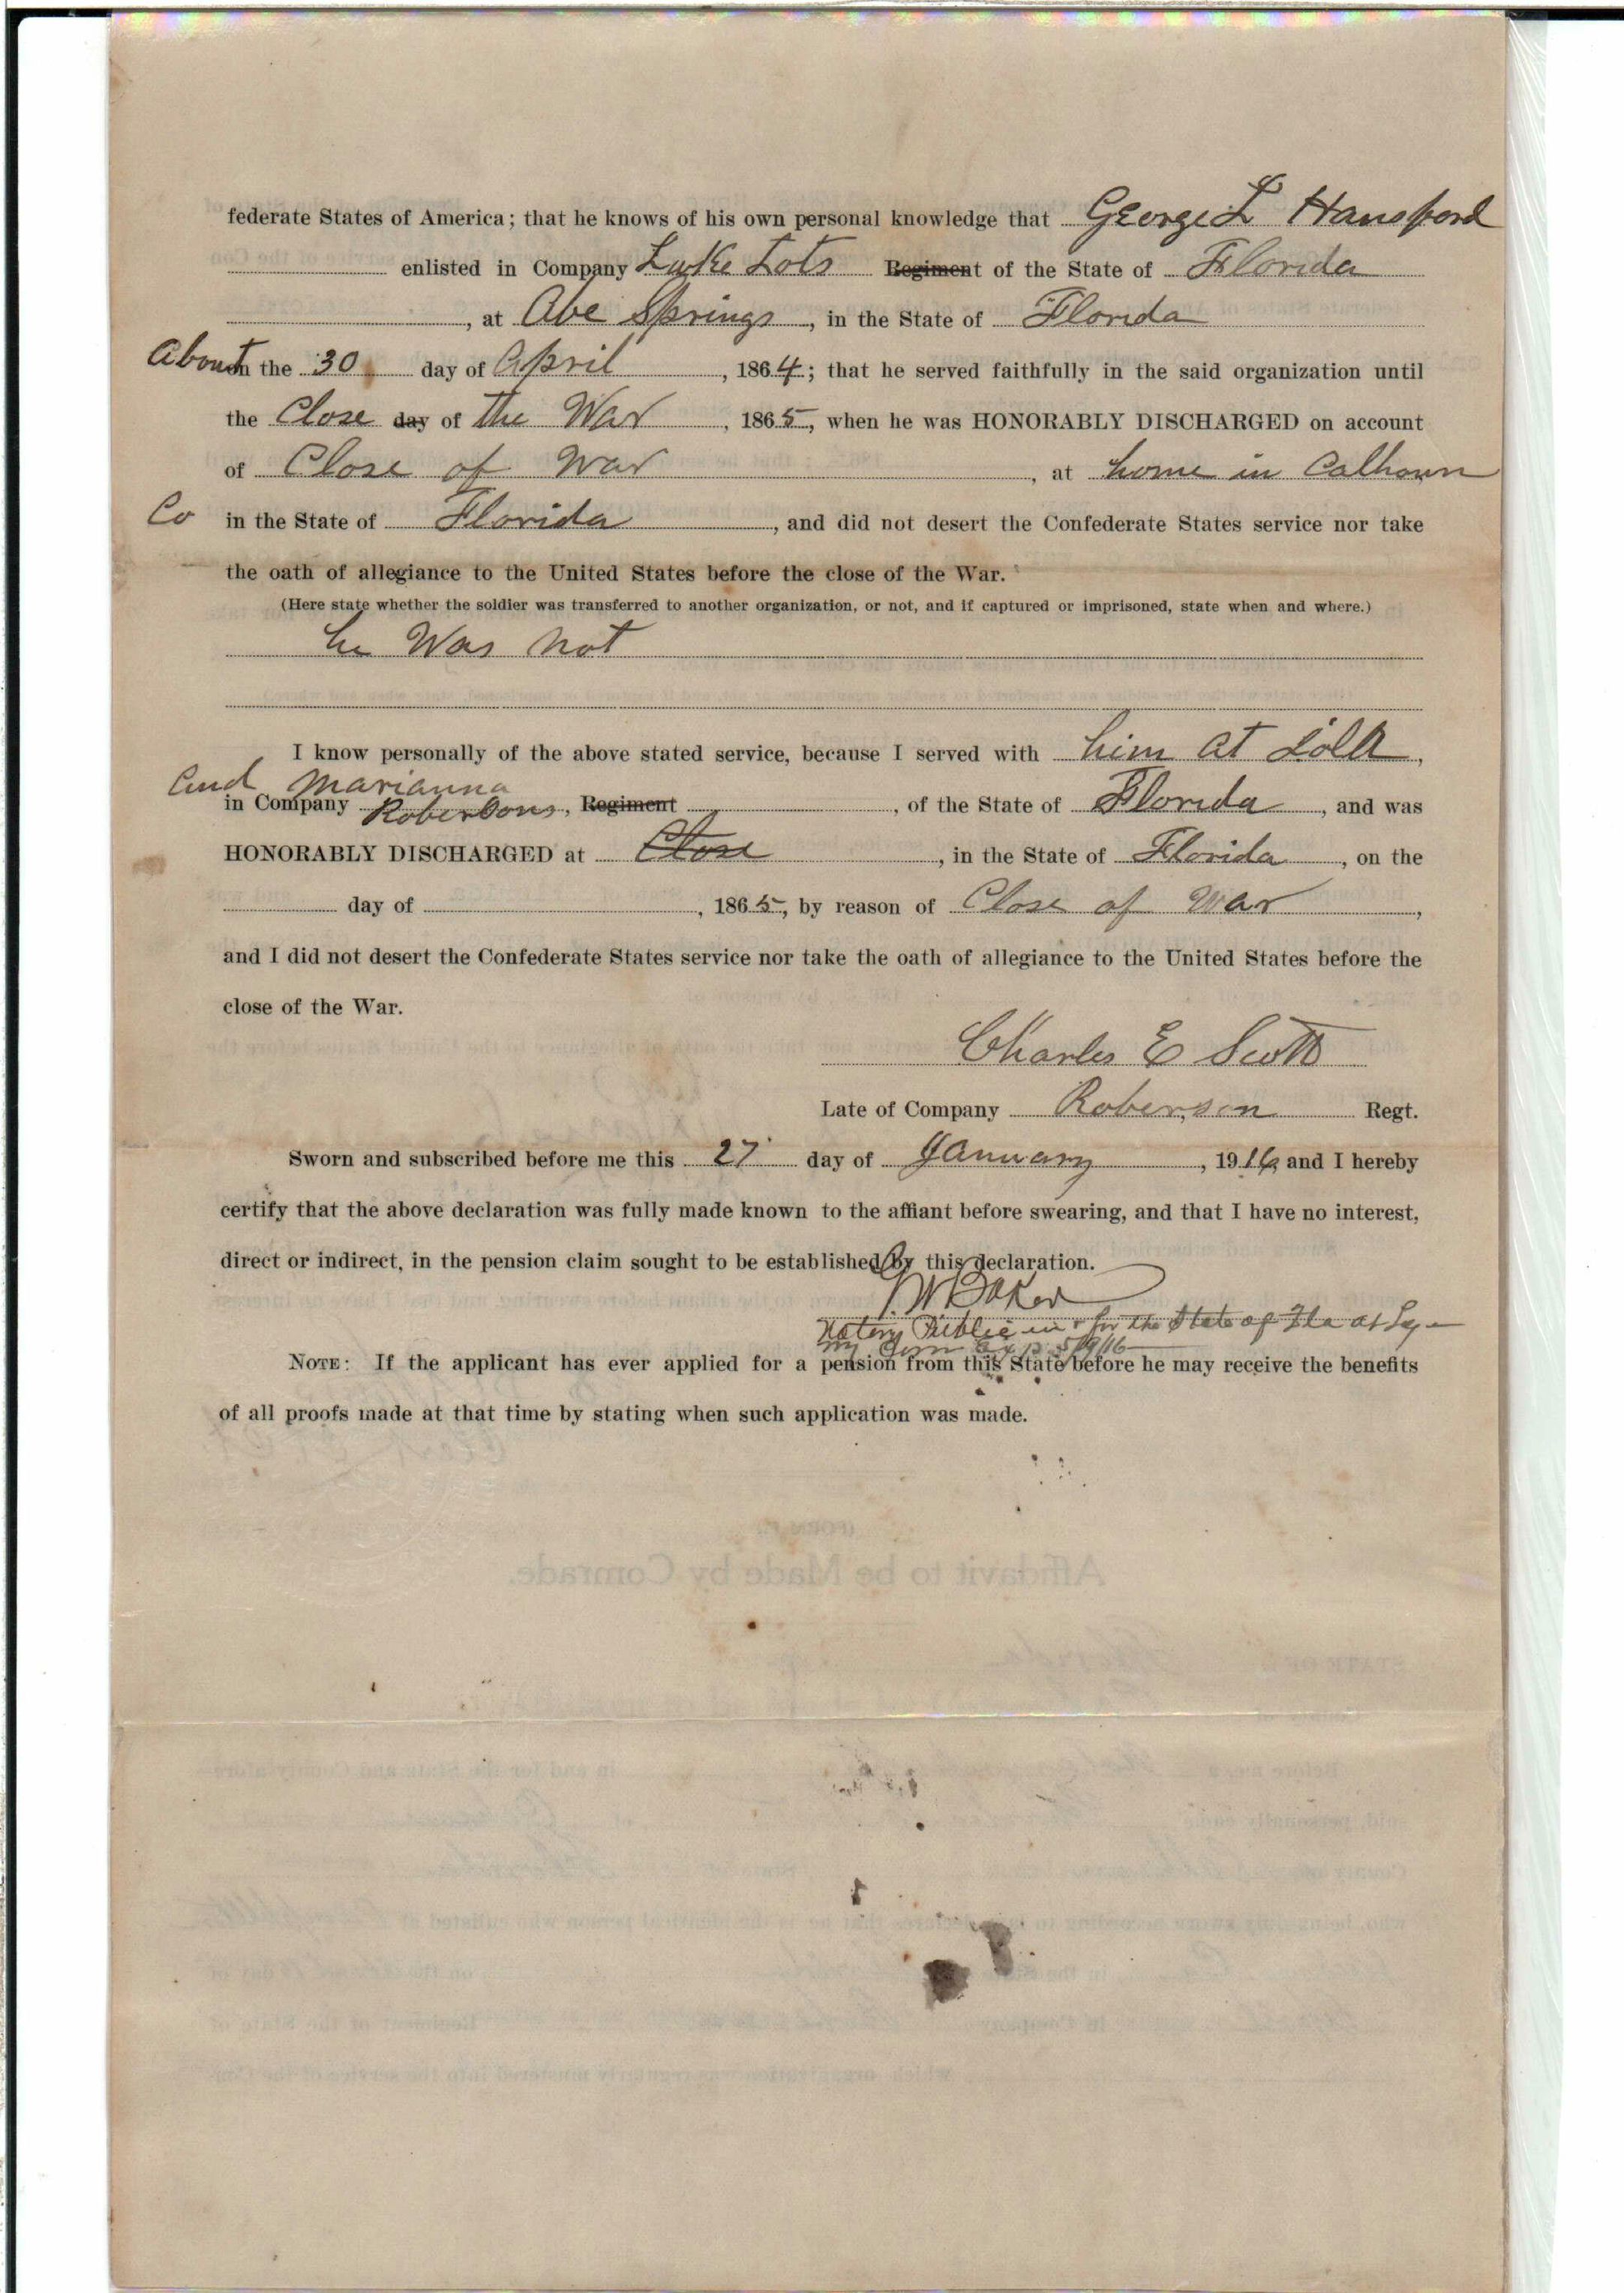 federate States of America; that he knows of his own personal knowledge that George L Hansford
enlisted in Company Luke Lots Regiment of the State of Florida
, at Abe Springs, in the State of Florida
About on the 30 day of April, 1864; that he served faithfully in the said organization until
the Close day of the War, 1865, when he was HONORABLY DISCHARGED on account
of Close of War, at home in Calhoun
Co in the State of Florida, and did not desert the Confederate States service nor take
the oath of allegiance to the United States before the close of the War.
(Here state whether the soldier was transferred to another organization, or not, and if captured or imprisoned, state when and where.)
he Was not
I know personally of the above stated service, because I served with him at
and Marianna
in Company Robersons, Regiment, of the State of Florida, and was
HONORABLY DISCHARGED at Close, in the State of Florida, on the
day of, 1865, by reason of Close of War,
and I did not desert the Confederate States service nor take the oath of allegiance to the United States before the
close of the War.
Charles E Scott
Late of Company Roberson Regt.
Sworn and subscribed before me this 27 day of January, 1916 and I hereby
certify that the above declaration was fully made known to the affiant before swearing, and that I have no interest,
direct or indirect, in the pension claim sought to be established by this declaration.
W Baker
Notary Public in & for the State of Fla at Lg
My Com Exp 5/9/16
NOTE: If the applicant has ever applied for a pension from this State before he may receive the benefits
of all proofs made at that time by stating when such application was made.